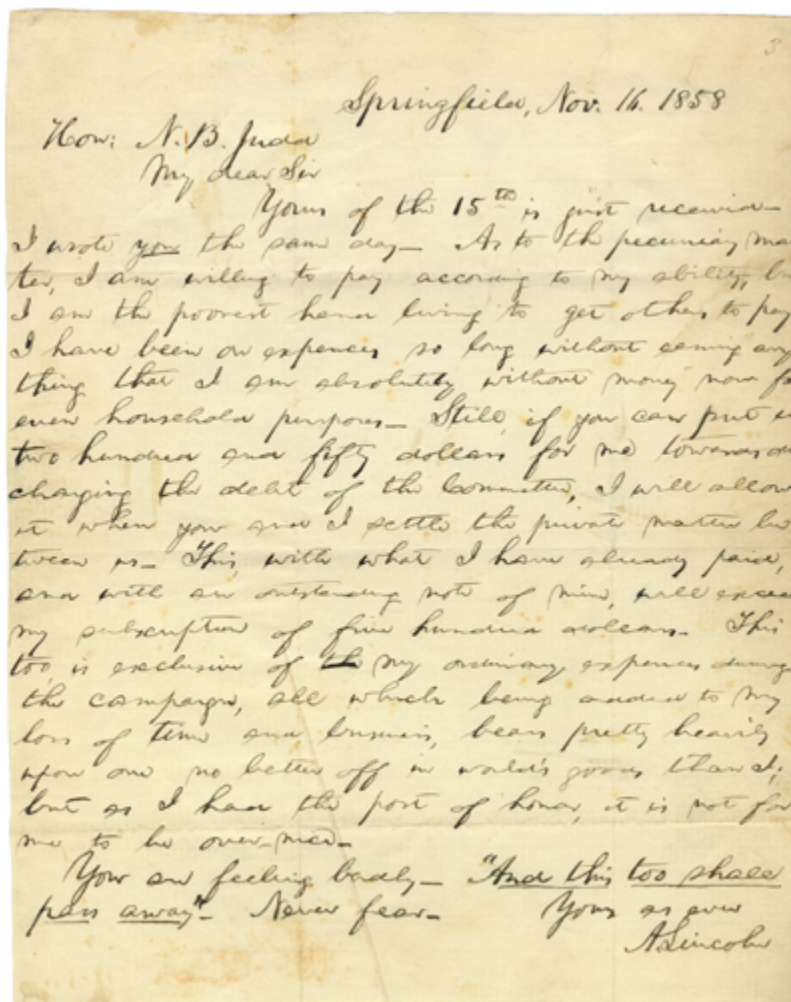 3
Springfield, Nov. 16. 1858
Hon: N. B. Judd
My dear Sir
Yours of the 15th is just received—
I wrote you the same day— As to the pecuniary mat
ter, I am willing to pay according to my ability; but
I am the poorest hand living to get others to pay
I have been on expences so long without earning any
thing that I am absolutely without money now for
even household purposes— Still, if you can put in
two hundred and fifty dollars for me towards dis
charging the debt of the Committee, I will allow
it when you and I settle the private matter be
tween us— This, with what I have already paid,
and with an outstanding note of mine, will exceed
my subscription of five hundred dollars— This
too, is exclusive of my ordinary expences during
the campaign, all which being added to my
loss of time and business, bears pretty heavily
upon one no better off in world's goods than I;
but as I had the post of honor, it is not for
me to be over-nice—
You are feeling badly— "And this too shall
pass away"— Never fear—
Yours as ever
A. Lincoln